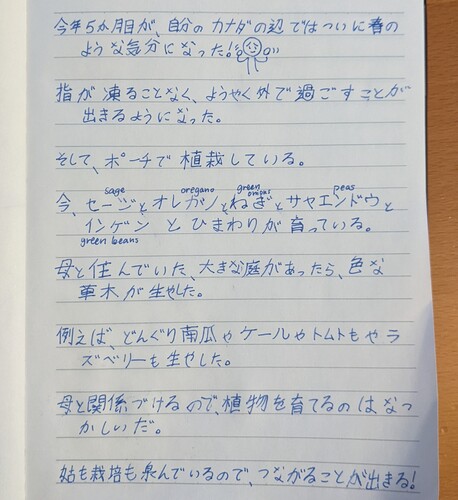 今年5か月目が、自分のカナダの辺ではついに春の
ような気分になった!
指が凍ることなく、ようやく外で過ごすことが
出きるようになった。
そして、ポーチで植栽している。
sage oregano green onions peas
今、セージとオレガノとねぎとサヤエンドウと
インゲンとひまわりが育っている。
green beans
母と住んでいた、大きな庭があったら、色な
草木が生やした。
例えば、どんぐり南瓜やケールやトムトもやラ
ズベリーも生やした。
母と関係づけるので、植物を育てるのはなつ
かしいだ。
姑も栽培も楽んでいるので、つながることが出きる!